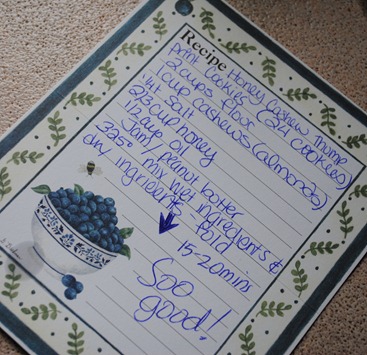 Recipe Honey Cashew Thump
print Cookies (24 cookies)
2 cups flour
1 cup cashews (almonds)
1/4 t salt
2/3 cup honey
1/2 cup oil
Jam/peanut butter
325° mix wet ingredients &
dry ingriedients - Fold
15-20 mins
Soo
good!